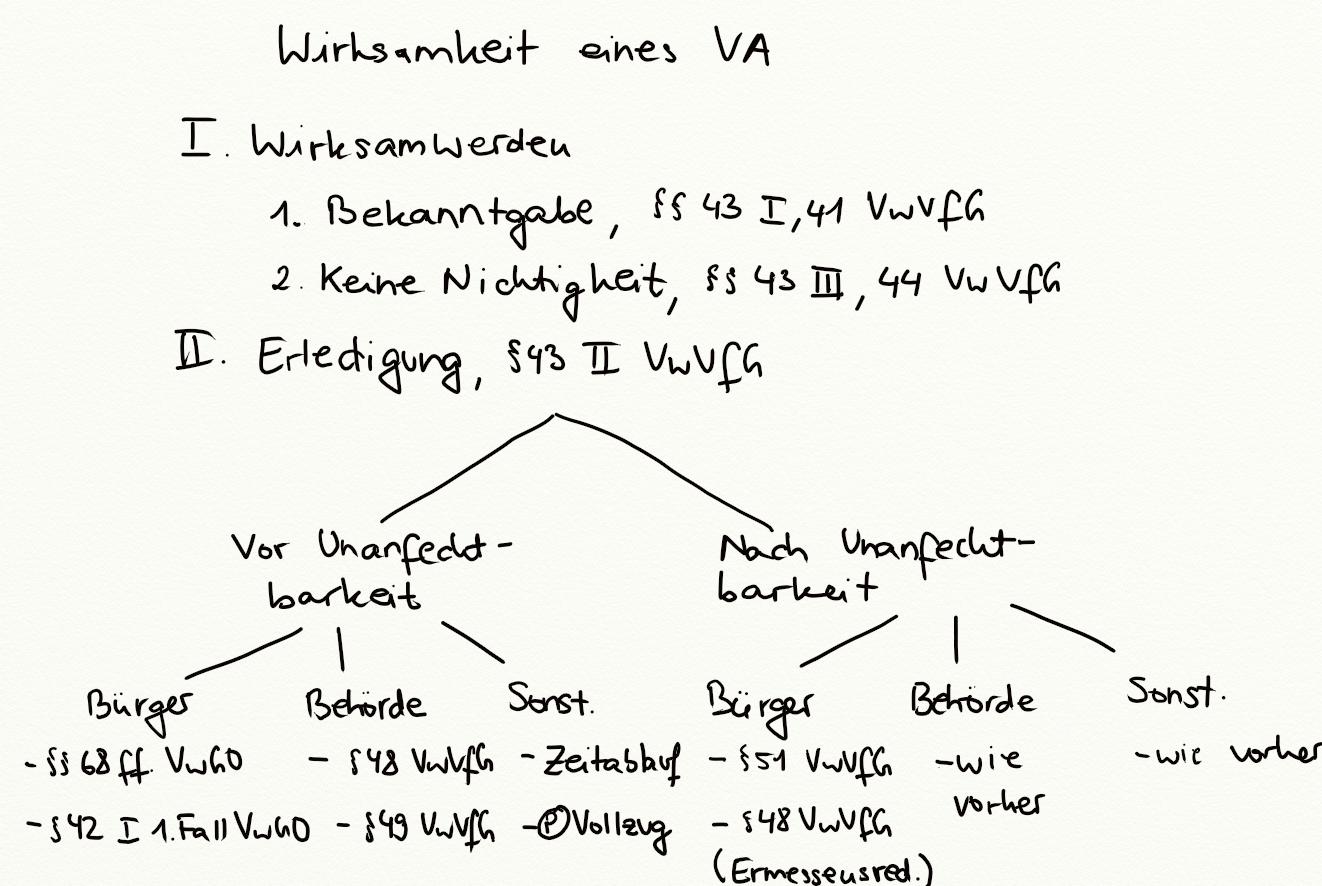 Wirksamkeit eines VA
I. Wirksamwerden
1. Bekanntgabe, §§ 43 I, 41 VwVfG
2. Keine Nichtigkeit, §§ 43 III, 44 VwVfG
II. Erledigung, § 43 II VwVfG
Vor Unanfecht-
barkeit
Nach Unanfecht-
barkeit
Bürger
- §§ 68 ff. VwGO
- § 42 I 1. Fall VwGO
Behörde
- § 48 VwVfG
- § 49 VwVfG
Sonst.
- Zeitablauf
- (P) Vollzug
Bürger
- § 51 VwVfG
- § 48 VwVfG
(Ermessensred.)
Behörde
- wie
vorher
Sonst.
- wie vorher